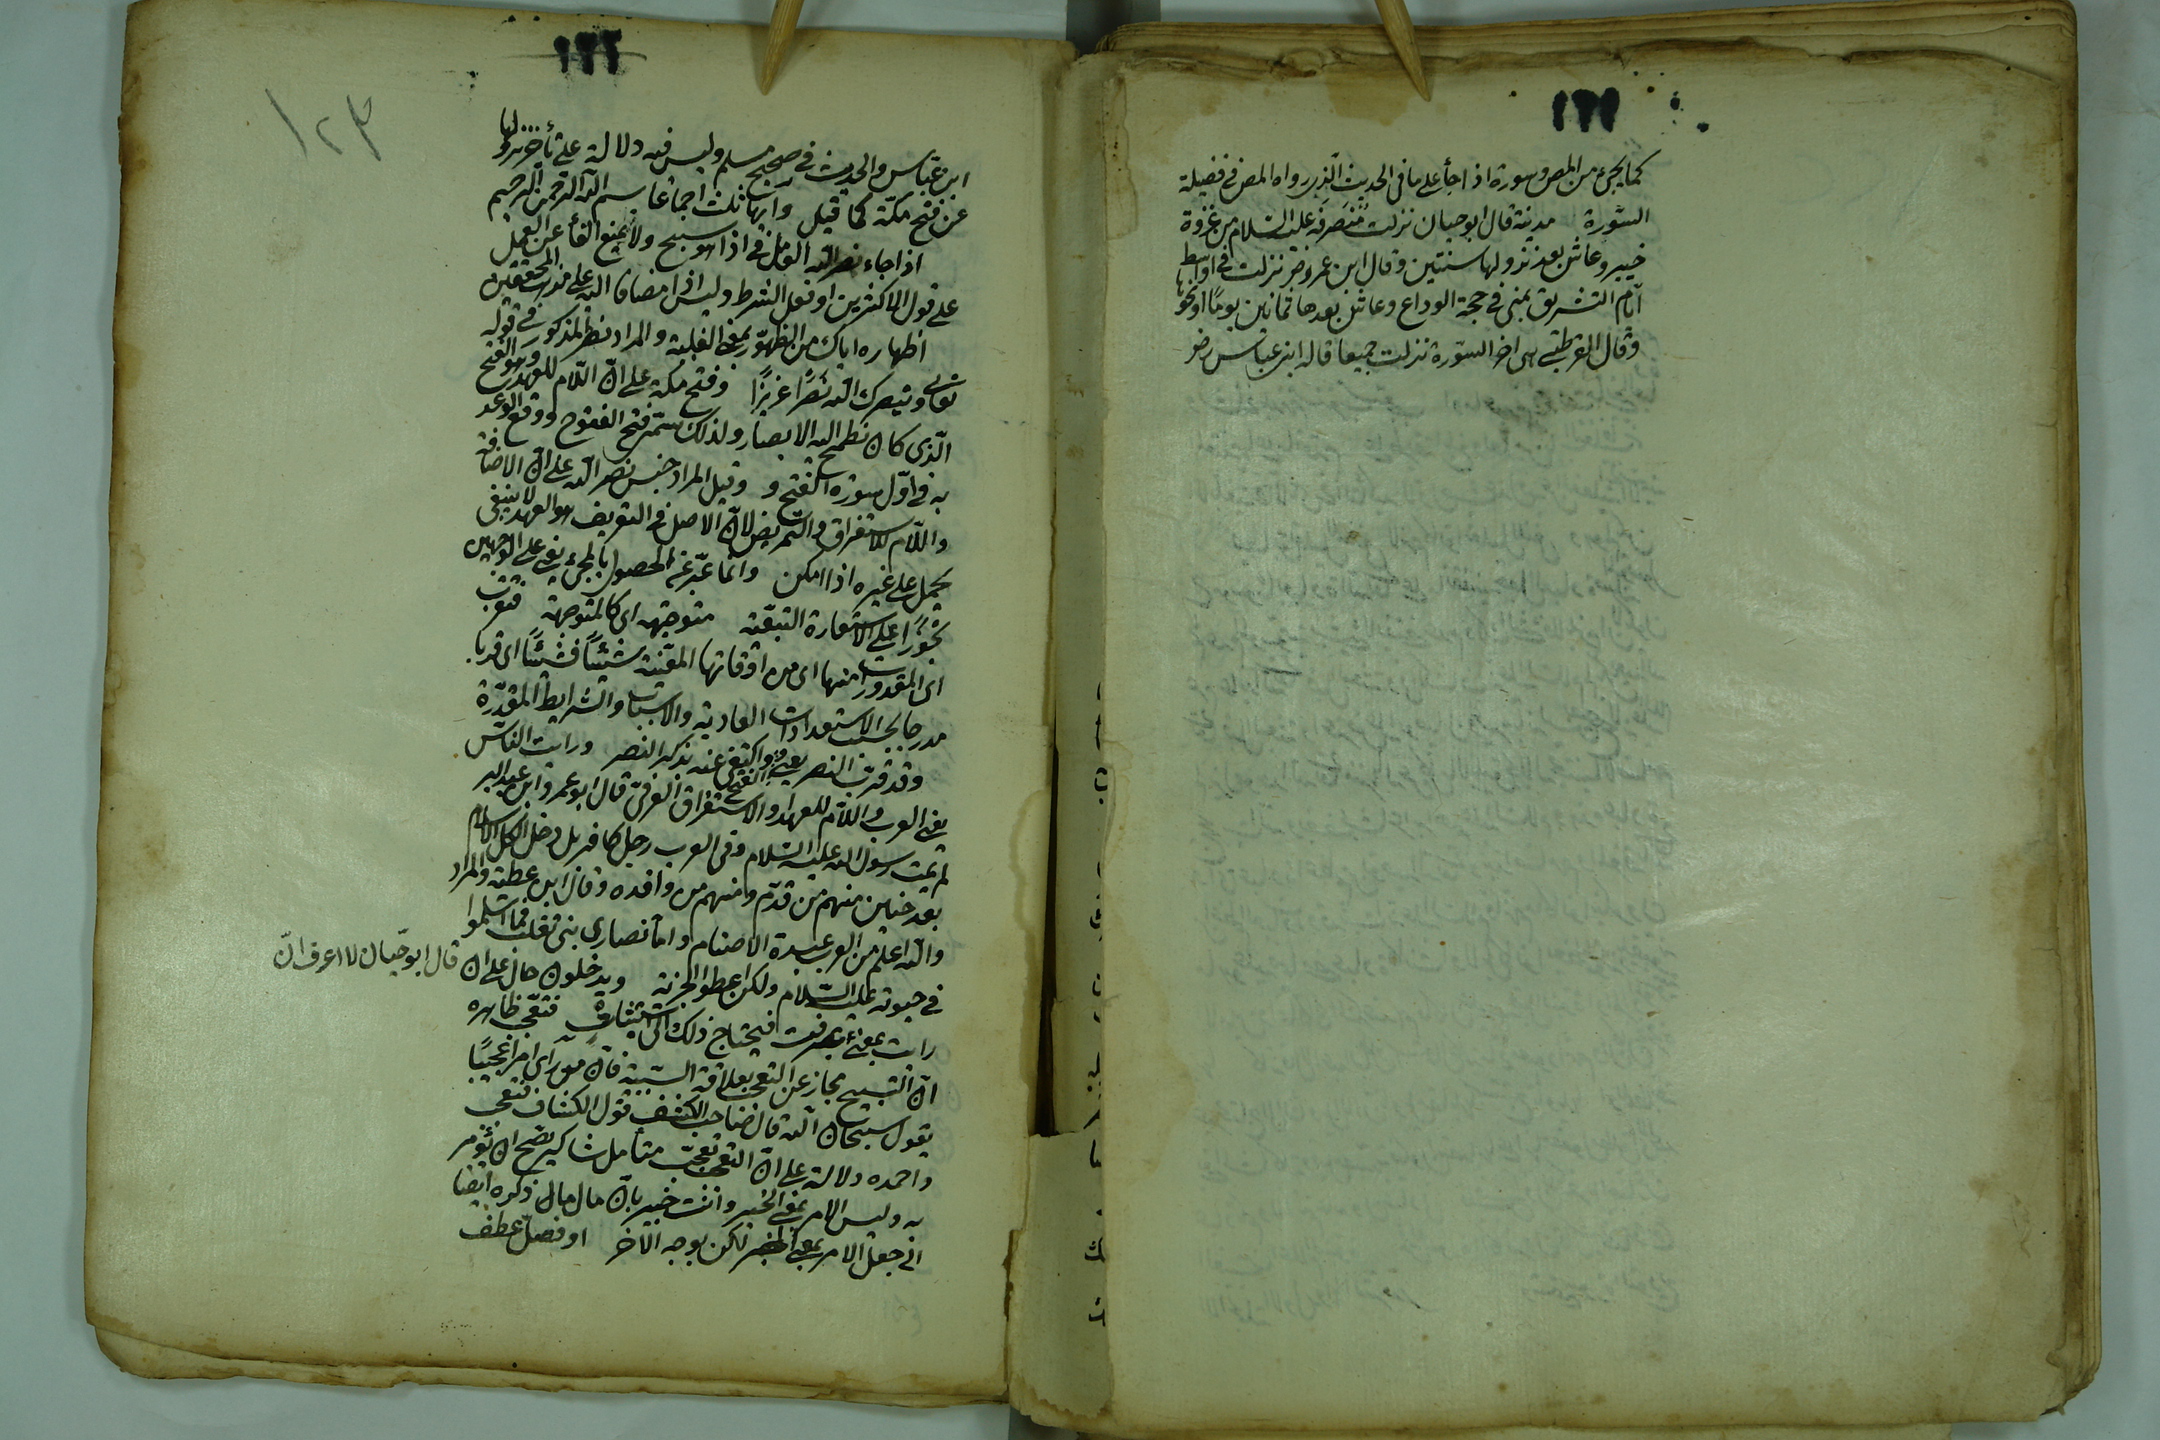 ١٢١
كما يجئ من المص وسورة اذا جأ على ما في الحديث الذي رواه المص في فضيلة
السورة مدنية قال ابو حيان نزلت منصرفه عليه السلام من غزوة
خيبر وعاش بعد نزولها سنتين وقال ابن عمر رضر نزلت في اوسط
ايام التشريق بمنى في حجة الوداع وعاش بعدها ثمانين يومًا او نحوها
وقال القرطبي هي اخر السورة نزلت جميعا قاله ابن عباس رضر
١٢٢
١٢٣
ابن عباس والحديث في صحيح مسلم وليس فيه دلالة على تأخر نزولها
عن فتح مكة كما قيل وآيها ثلث اجماعا بسم الله الرحمن الرحيم
اذا جاء نصر الله العامل في اذا هو سبح ولا يمنع الفأ عن العمل
على قول الاكثرين او فعل الشرط وليس اذا مضافا اليه على مذهب المحققين
اظهاره اياك من الظهور بمعنى الغلبة والمراد نصر المذكور في قوله
تعالى وينصرك الله نصرًا عزيزًا وفتح مكة على ان اللام للعهد وهو الفتح
الذي كان تطمح اليه الابصار ولذلك سمى فتح الفتوح ووقع الوعد
به في اول سورة الفتح و وقيل المراد جنس نصر الله على ان الاضافة
واللام للاستغراق والتمريض لان الاصل في التعريف هو العهد لا ينبغي
يحمل على غيره اذا امكن وانما عبر عن الحصول بالمجئ يعني على الوجهين
تجوزًا على الاستعارة التبعية متوجهة اى كالمتوجهة فتقرب
اى المقدورات منها اى من اوقاتها المعينة شيئًا فشيئًا اى قربا
مدرجا بحسب الاستعدادات العادية والاسباب والشرايط المقدرة
وقد قرب النصر يعني والفتح واكتفى عنه بذكر النصر ورايت الناس
يعني العرب واللام للعهد او الاستغراق العرفي قال ابو عمرو ابن عبد البر
لم يمت رسول الله عليه السلام وفي العرب رجل كافر بل دخل الكل الاسلام
بعد حنين منهم من قدم ومنهم من وافده وقال ابن عطية والمراد
والله اعلم من العرب عبدة الاصنام واما نصارى بني تغلب فما اسلموا
في حيوته عليه السلام ولكن اعطوا الجزية ويدخلون حال على ان قال ابو حيان لا اعرف ان
رايت بمعنى عرفت فيحتاج ذلك الى استثبات فتعجب ظاهره
ان التسبيح مجاز عن التعجب بعلاقة السببية فان من راى امرا عجيبًا
يقول سبحان الله قال صاحب الكشف قول الكشاف فتعجب
واحمده دلالة على ان التعجب تعجب متأمل شاكر يصح ان يؤمر
به وليس الامر بمعنى الخبر وانت خبير بان مال مال ذكره ايضا
الى جعل الامر بمعنى الخبر لكن بوجه الاخر او فصل عطف